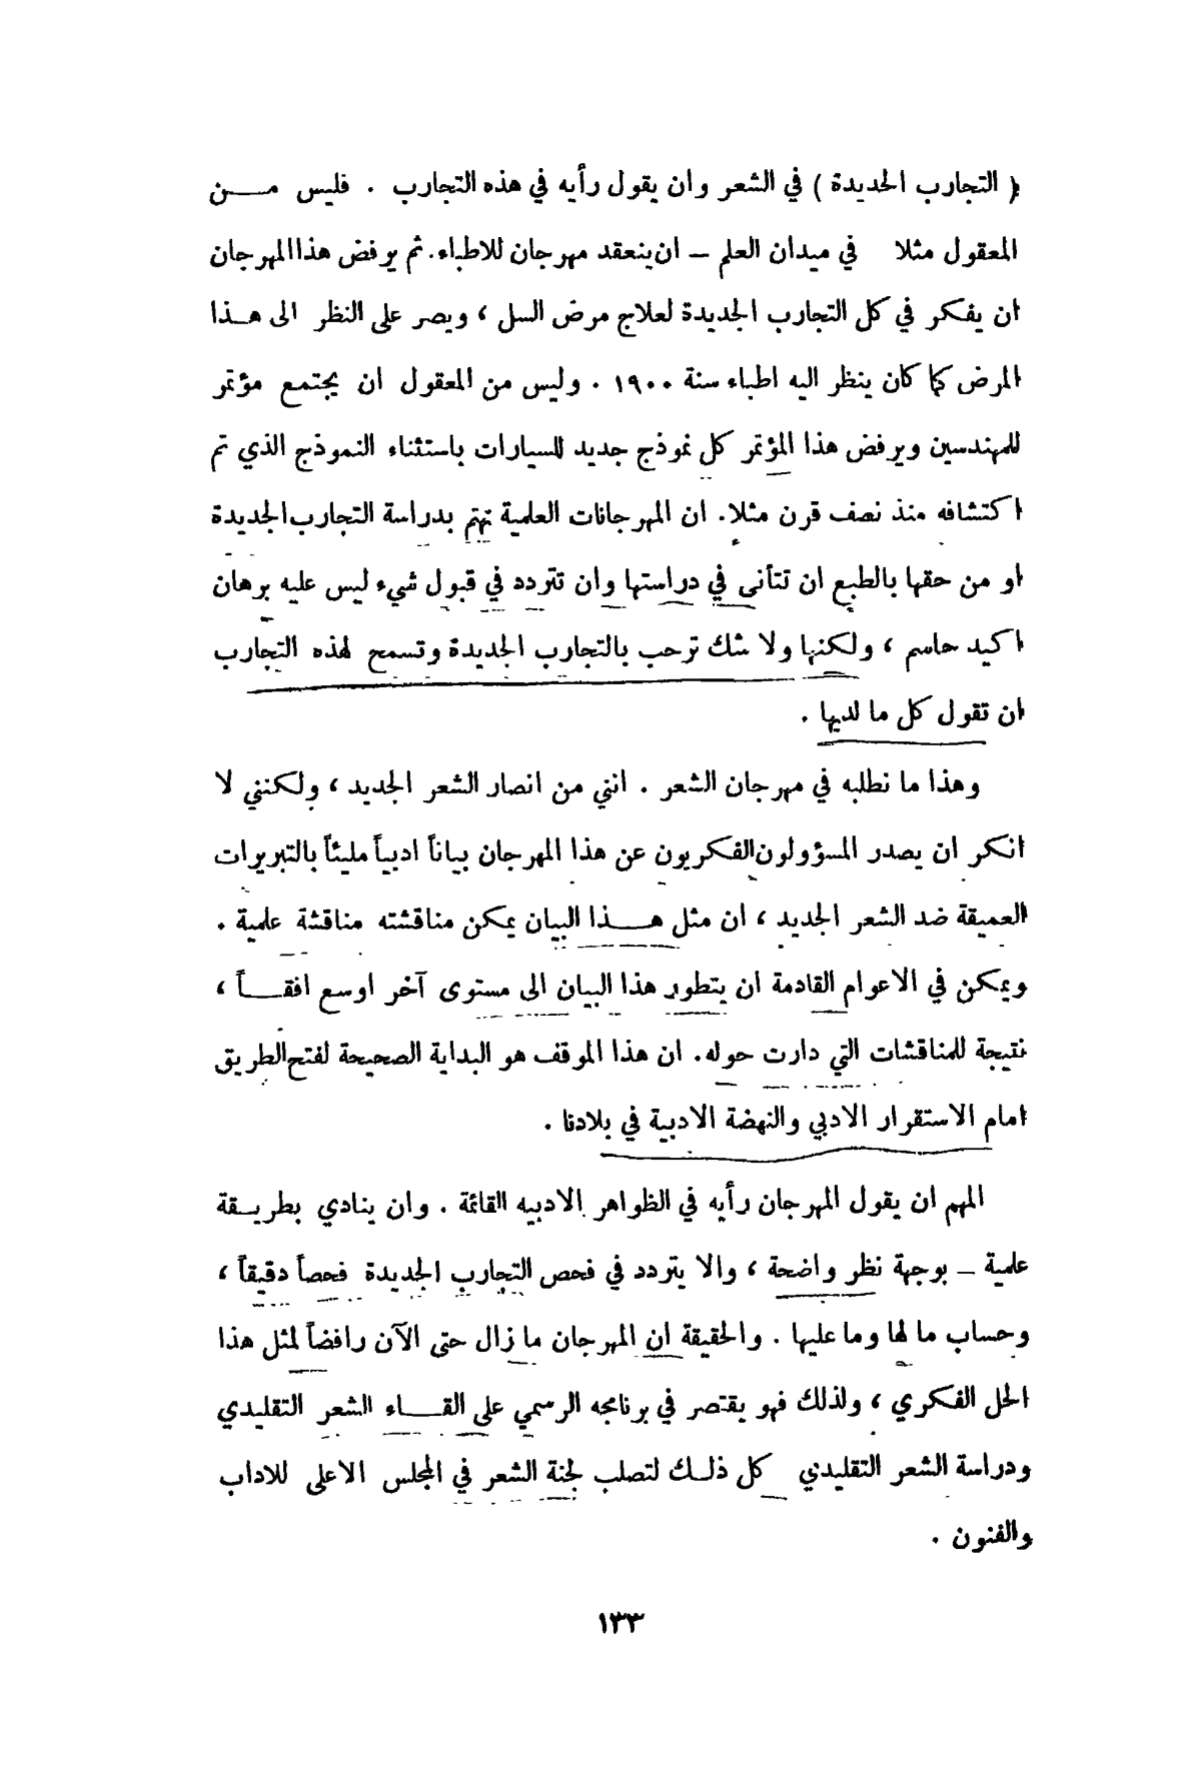 ( التجارب الجديدة ) في الشعر وان يقول رأيه في هذه التجارب . فليس مـــن
المعقول مثلا في ميدان العلم – ان ينعقد مهرجان للاطباء. ثم يرفض هذا المهرجان
ان يفكر في كل التجارب الجديدة لعلاج مرض السل ، ويصر على النظر الى هـذا
المرض كما كان ينظر اليه اطباء سنة ١٩٠٠ . وليس من المعقول ان يجتمع مؤتمر
للمهندسين ويرفض هذا المؤتمر كل نموذج جديد للسيارات باستثناء النموذج الذي تم
اكتشافه منذ نصف قرن مثلا. ان المهرجانات العلمية تهتم بدراسة التجارب الجديدة
او من حقها بالطبع ان تتأنى في دراستها وان تتردد في قبول شيء ليس عليه برهان
اكيد حاسم ، ولكنها ولا شك ترحب بالتجارب الجديدة وتسمح لهذه التجارب
ان تقول كل ما لديها .
وهذا ما نطلبه في مهرجان الشعر . انني من انصار الشعر الجديد ، ولكنني لا
انكر ان يصدر المسؤولون الفكريون عن هذا المهرجان بياناً ادبياً مليئاً بالتبريرات
العميقة ضد الشعر الجديد ، ان مثل هـــذا البيان يمكن مناقشته مناقشة علمية .
ويمكن في الاعوام القادمة ان يتطور هذا البيان الى مستوى آخر اوسع افقـــاً ،
نتيجة للمناقشات التي دارت حوله. ان هذا الموقف هو البداية الصحيحة لفتح الطريق
امام الاستقرار الادبي والنهضة الادبية في بلادنا .
المهم ان يقول المهرجان رأيه في الظواهر الادبيه القائمة . وان ينادي بطريـقة
علمية – بوجهة نظر واضحة ، والا يتردد في فحص التجارب الجديدة فحصاً دقيقاً ،
وحساب ما لها وما عليها . والحقيقة ان المهرجان ما زال حتى الآن رافضاً لمثل هذا
الحل الفكري ، ولذلك فهو يقتصر في برنامجه الرسمي على القـــاء الشعر التقليدي
ودراسة الشعر التقليدي كل ذلـك لتصلب لجنة الشعر في المجلس الاعلى للاداب
والفنون .
١٣٣